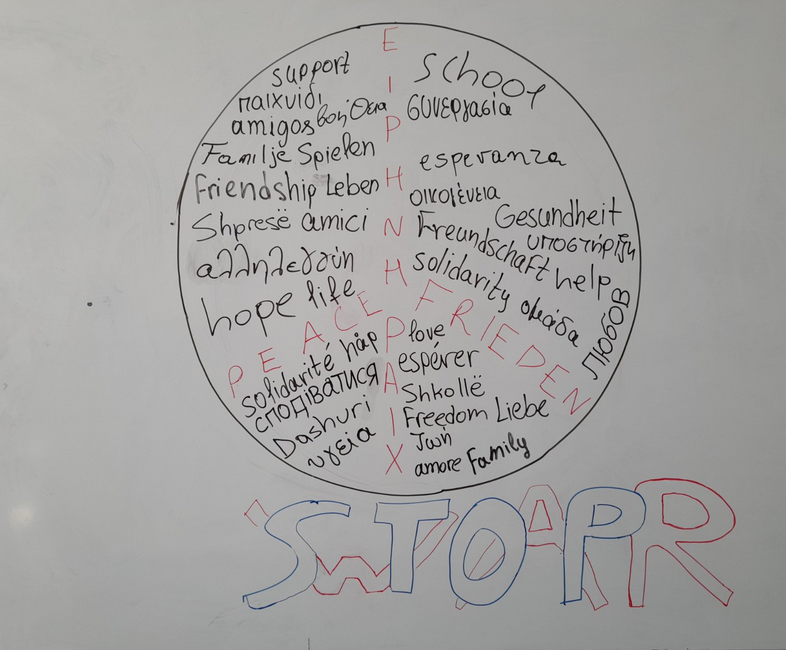 support
παιχνίδι
amigos βοήθεια
Familje Spielen
Friendship Leben
Shpresë amici
αλληλεγγύη
hope life
ΕΙΡΗΝΗ
school
συνεργασία
esperanza
οικογένεια
Gesundheit
Freundschaft υποστήριξη
solidarity help
ομάδα
ЛЮБОВ
PEACE
FRIEDEN
PAIX
solidarité håp
СПОДІВАТИСЯ
Dashuri
υγεία
love
espérer
Shkollë
Freedom Liebe
Ζωή
amore Family
STOP
WAR